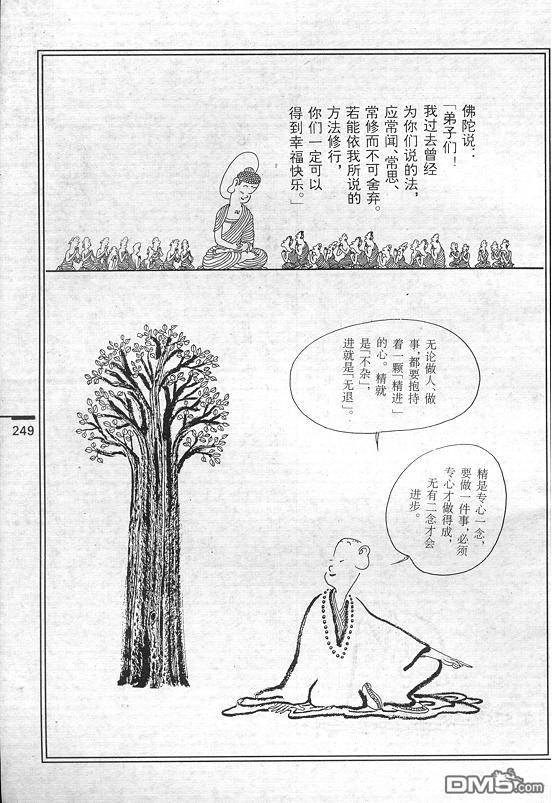 佛陀说：
「弟子们！
我过去曾经
为你们说的法，
应常闻、常思、
常修而不可舍弃。
若能依我所说的
方法修行，
你们一定可以
得到幸福快乐。」
无论做人、做
事，都要抱持
着一颗「精进」
的心。精就
是「不杂」，
进就是「无退」。
精是专心一念，
要做一件事，必须
专心才做得成，
无有二念才会
进步。
249
DM5.com